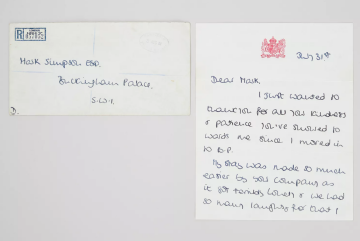 R
Mark Simpson Esq.
Buckingham Palace.
S.W.1.
D.
July 31st
Dear Mark,
I just wanted to
thank you for all your kindness
& patience you've showed to
wards me since I moved in
to B.P.
My stay was made so much
easier by your company as
it got terribly lonely & we had
so many laughs for that I